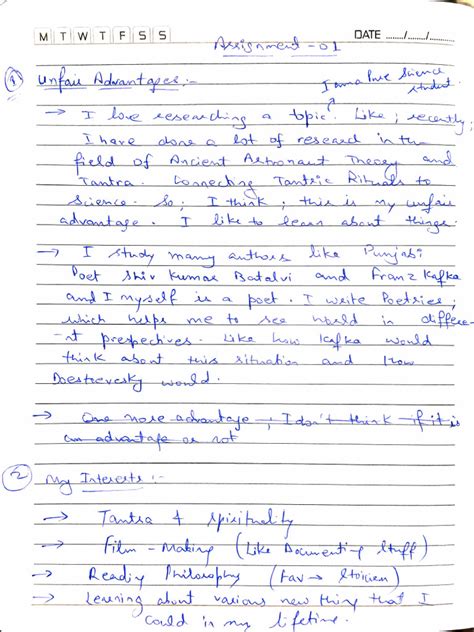 M T W T F S S
DATE ...../...../.....
Assignment - 01
① Unfair Advantages :-
I am a Pure Science student.
→ I love researching a topic. Like; recently,
I have done a lot of research in the
field of Ancient Astronaut Theory and
Tantra. Connecting Tantric Rituals to
Science. So; I think; this is my unfair
advantage. I like to learn about things.
→ I study many authors like Punjabi
Poet Shiv Kumar Batalvi and Franz Kafka
and I myself is a poet. I write Poetries;
which helps me to see world in differe-
nt prespectives. Like how Kafka would
think about this situation and how
Doestoevesky would.
→ One more advantage; I don't think if it is
an advantage or not
② My Interests :-
→ Tantra & Spirituality
→ Film - Making (Like Documenting Stuff)
→ Reading Philosophy (Fav →
→ Learning about various new thing that I
could in my lifetime.